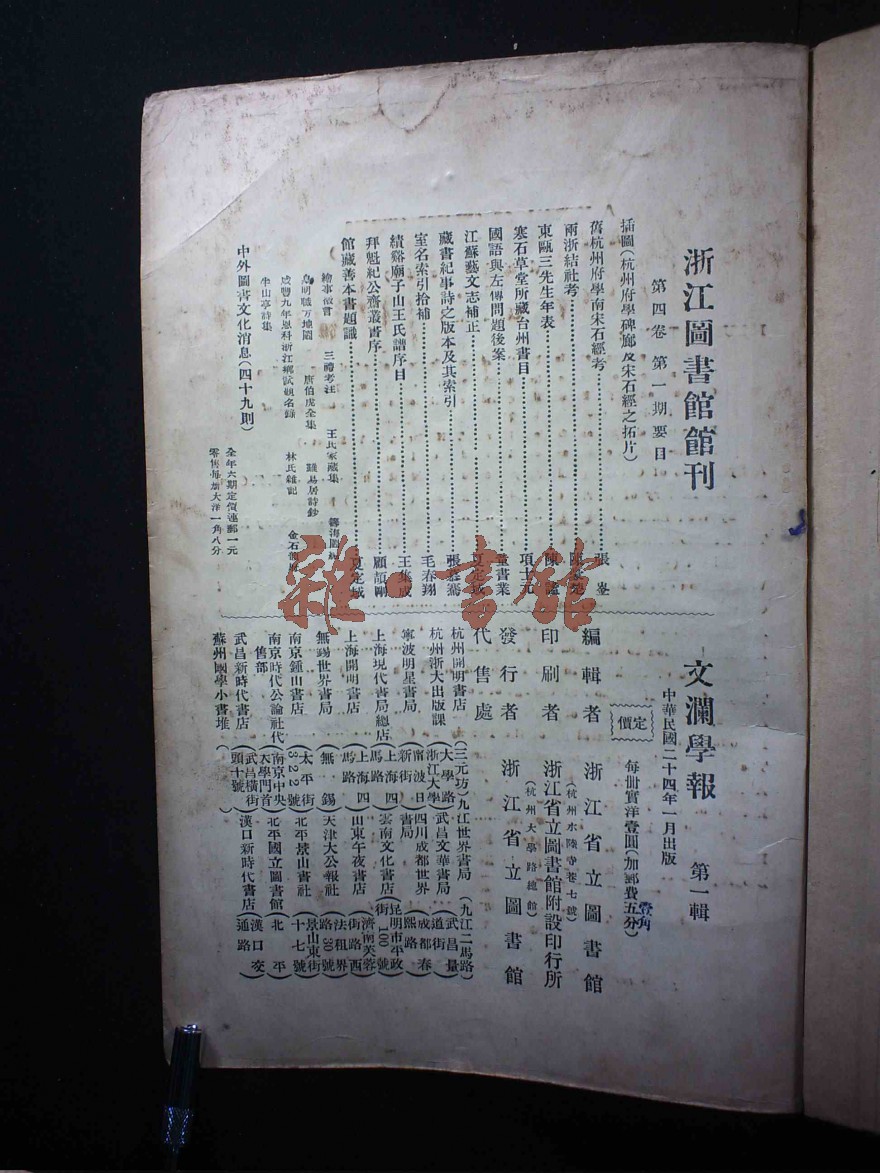 浙江圖書館館刊
第四卷 第一期要目
插圖(杭州府學碑廊及宋石經之拓片)
舊杭州府學南宋石經考 張崟
兩浙結社考
東甌三先生年表 陳
寒石草堂所藏台州書目 項士元
國語與左傳問題後案 童書業
江蘇藝文志補正 夏定域
藏書紀事詩之版本及其索引 張慕騫
室名索引拾補 毛春翔
績谿廟子山王氏譜序目 王集成
拜魁紀公齋叢書序 顧頡剛
館藏善本書題識 夏定域
繪事微言 三禮考注 王氏家藏集
唐伯虎全集
咸豐九年恩科浙江鄉試題名錄 林氏雜記
半山亭詩集
中外圖書文化消息(四十九則)
全年六期定價連郵一元
零售每册大洋一角八分
文瀾學報 第一輯
中華民國二十四年一月出版
定價 每册實洋壹圓(加郵費五分)
壹角
編輯者 浙江省立圖書館
(杭州水陸寺巷七號)
印刷者 浙江省立圖書館附設印行所
(杭州大學路總館)
發行者 浙江省立圖書館
代售處
杭州開明書店(三元坊)
杭州浙大出版課(大學路浙江大學)
寧波明星書局(甯波日新街)
上海現代書局總店(上海四馬路)
上海開明書店(上海四馬路)
無錫世界書局(無錫)
南京鍾山書店(太平街822號)
南京時代公論社代售部(南京中央大學門首)
武昌新時代書店(武昌橫街頭十號)
蘇州國學小書堆()
九江世界書局(九江二馬路)
武昌文華書局(武昌量道街)
四川成都世界書局(成都春熙路)
雲南文化書店(昆明市平政街100號)
山東午夜書店(濟南芙蓉街路西)
天津大公報社(法租界30號路)
北平景山書社(景山東街十七號)
北平國立圖書館(北平)
漢口新時代書店(漢口交通路)
雜·書館